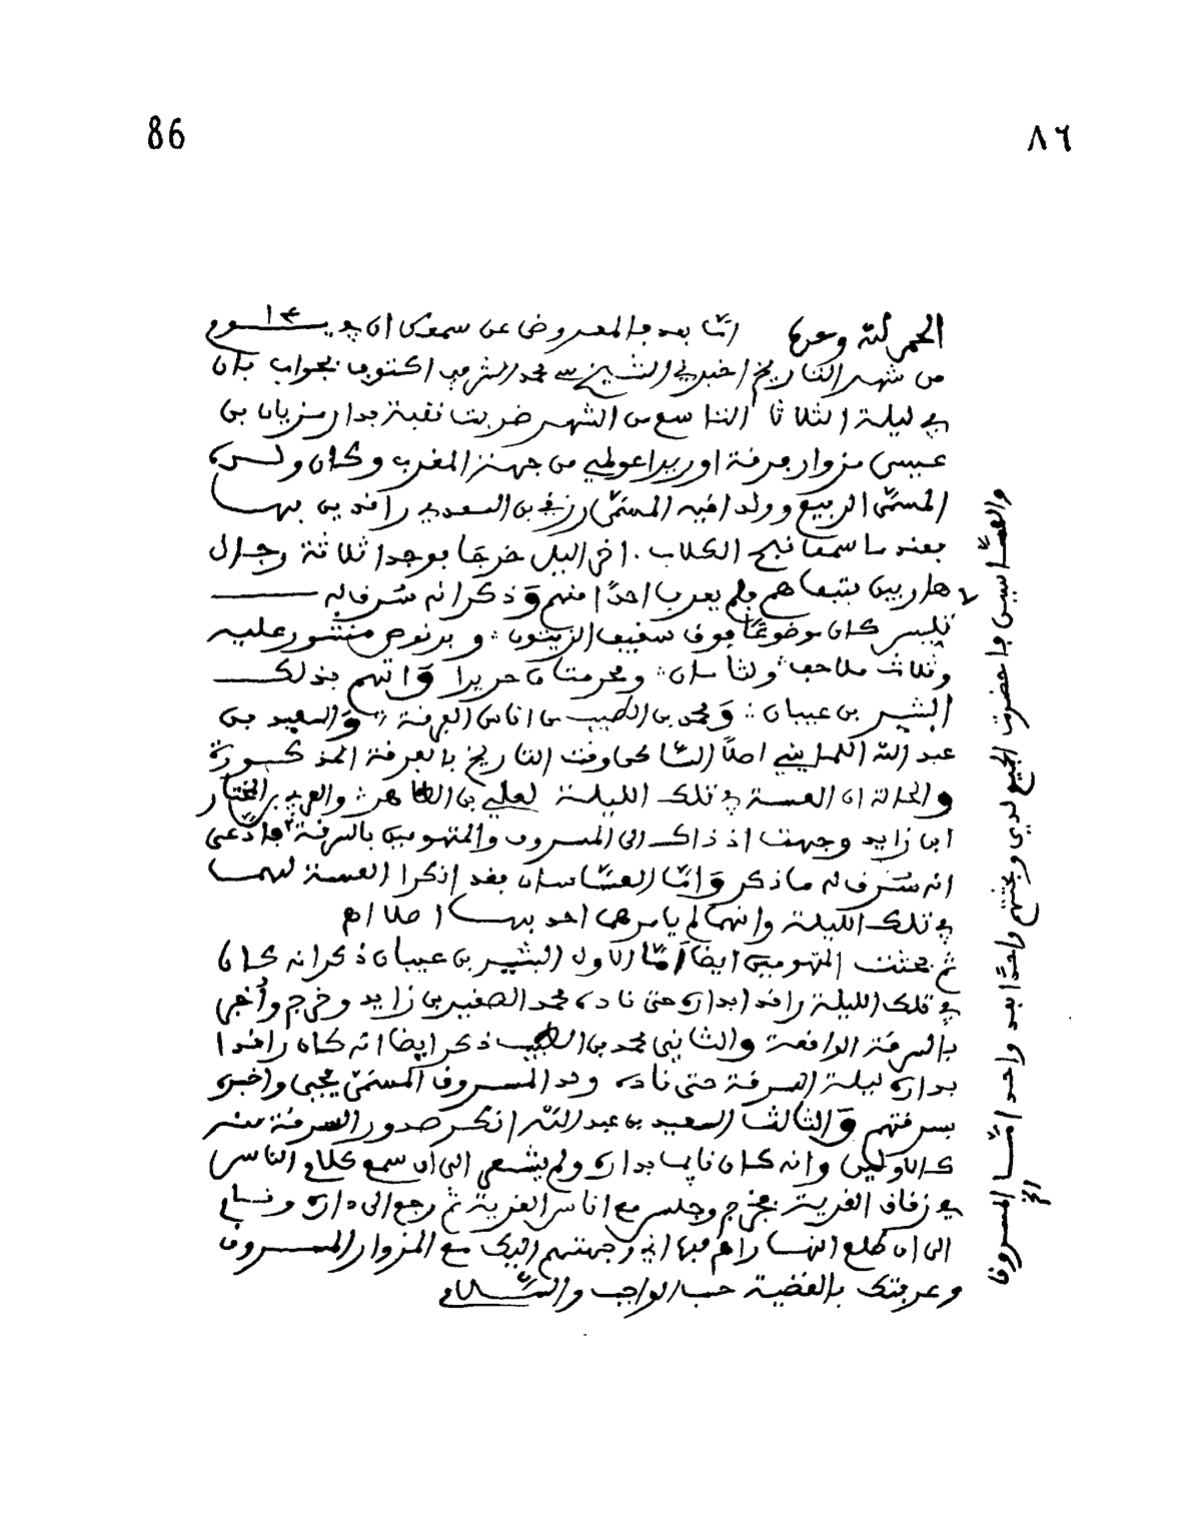 86
٨٦
الحمد لله وحده اما بعد فالمعروض عن سمعكم ان في يوم ١٣
من شهر التاريخ اخبرني الشيخ سي محمد الشرفي اكتوب بجواب بان
في ليلة الثلاثا التاسع من الشهر ضربت نقبة بدار مزيان بن
عيسى مزوار فرقة من جهة المغرب وكان ولده
المسمى الربيع وولد اخيه المسمى رزقي بن السعدي راقدين بها
بعند ما سمعا نبح الكلاب اخر اليل خرجا فوجدا ثلاثة رجال
هاربين بتبعاهم فلم يعرفا احدًا منهم وذكر انه سُرق له
تليس كان موضوعًا فوق سقيف الزيتون وبرنوص منشور عليه
وثلاث ملاحف ولثامان ومحرمتان حريرا واتهم بذلك
البشير بن عيبان ومحمد بن الطيب من اناس العرفة والسعيد بن
عبد الله اصلًا الساكن وقت التاريخ بالعرفة المذكورة
والحال ان العسة في تلك الليلة لعلي بن الطاهر والعربي بن المختار
ابن زايد وجهت اذ ذاك الى المسروق والمتهومين بالسرقة فادعى
انه سُرق له ما ذكر واما العسّاسان فقد انكرا العسة ليهما
في تلك الليلة وانهما لم يامرهما احد بها اصلا اهـ
ثم بحثت المتهومين ايضًا امّا الاول البشير بن عيبان ذكر انه كان
في تلك الليلة راقدا بداره حتى ناده محمد الصغير بن زايد وخرج وأخبر
بالسرقة الواقعة والثاني محمد بن الطيب ذكر ايضا انه كان راقدا
بداره ليلة السرقة حتى ناده ولد المسروق المسمى يحيى واخبره
بسرقتهم والثالث السعيد بن عبد الله انكر صدور السرقة منه
كالاولين وانه كان نايما بداره ولم يشعر الى ان سمع كلام الناس
في زقاق القرية فخرج وجلس مع اناس القرية ثم رجع الى داره ونام
الى ان طلع النهار وجهتهم اليك مع المزوار المسروق
وعرفتك بالقضية حسب الواجب والسلام
والعسّاسين فاحضرت الجميع لدي وبحثتهم واحدًا بعد واحد امّا المسروق
الخ